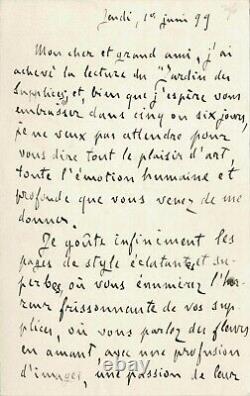 Jeudi, 1er juin 99
Mon cher et grand ami, j'ai
achevé la lecture du Jardin des
Supplices, et, bien que j'espère vous
embrasser dans cinq ou six jours,
je ne veux pas attendre pour
vous dire tout le plaisir d'art,
toute l'émotion humaine et
profonde que vous venez de me
donner.
Je goûte infiniment les
pages de style éclatantes et su-
perbes, où vous énumérez l'ho-
rreur frissonnante de vos sup-
plices, où vous parlez des fleurs
en amant, avec une profusion
d'images, une passion de leur